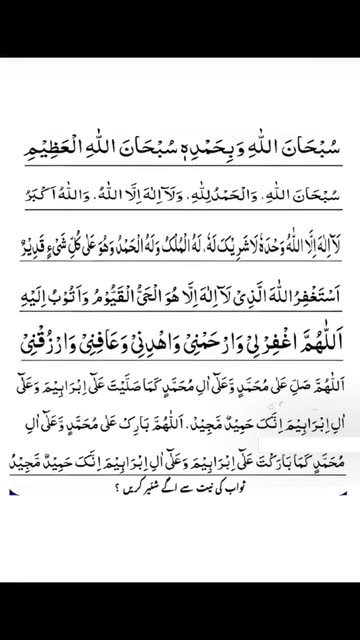 سُبْحَانَ اللّٰهِ وَبِحَمْدِهٖ سُبْحَانَ اللّٰهِ الْعَظِيْمِ
سُبْحَانَ اللّٰهِ، وَالْحَمْدُ لِلّٰهِ، وَلَآ اِلٰهَ اِلَّا اللّٰهُ، وَاللّٰهُ اَكْبَرُ
لَآ اِلٰهَ اِلَّا اللّٰهُ وَحْدَهٗ لَا شَرِيْكَ لَهٗ، لَهُ الْمُلْكُ وَلَهُ الْحَمْدُ وَهُوَ عَلٰى كُلِّ شَيْءٍ قَدِيْرٌ
اَسْتَغْفِرُ اللّٰهَ الَّذِيْ لَآ اِلٰهَ اِلَّا هُوَ الْحَيُّ الْقَيُّوْمُ وَاَتُوْبُ اِلَيْهِ
اَللّٰهُمَّ اغْفِرْ لِيْ وَارْحَمْنِيْ وَاهْدِنِيْ وَعَافِنِيْ وَارْزُقْنِيْ
اَللّٰهُمَّ صَلِّ عَلٰى مُحَمَّدٍ وَّعَلٰٓى اٰلِ مُحَمَّدٍ كَمَا صَلَّيْتَ عَلٰٓى اِبْرَاهِيْمَ وَعَلٰٓى
اٰلِ اِبْرَاهِيْمَ اِنَّكَ حَمِيْدٌ مَّجِيْدٌ. اَللّٰهُمَّ بَارِكْ عَلٰى مُحَمَّدٍ وَّعَلٰٓى اٰلِ
مُحَمَّدٍ كَمَا بَارَكْتَ عَلٰٓى اِبْرَاهِيْمَ وَعَلٰٓى اٰلِ اِبْرَاهِيْمَ اِنَّكَ حَمِيْدٌ مَّجِيْدٌ
ثواب کی نیت سے آگے شئیر کریں ؟